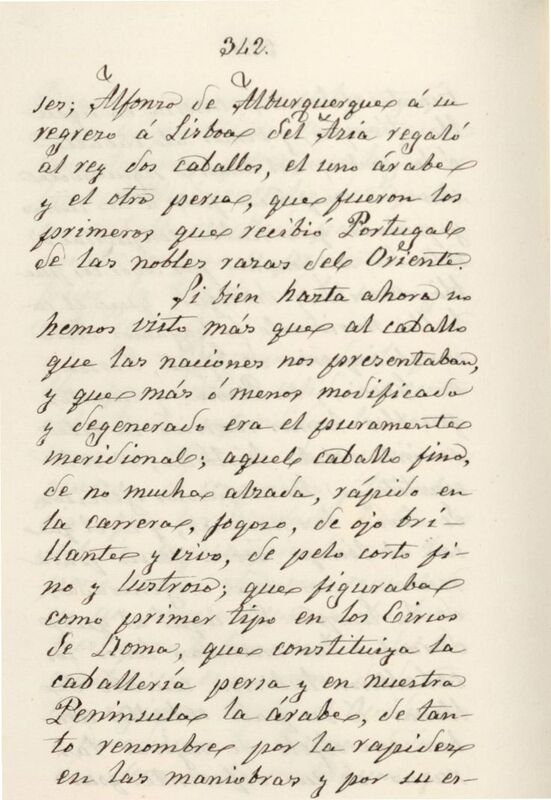 342.
ses; Alfonso de Alburquerque á su
regreso á Lisboa del Asia regaló
al rey dos caballos, el uno árabe
y el otro persa, que fueron los
primeros que recibió Portugal
de las nobles razas del Oriente.
Si bien hasta ahora no
hemos visto más que al caballo
que las naciones nos presentaban,
y que más ó menos modificado
y degenerado era el puramente
meridional; aquel caballo fino,
de no mucha alzada, rápido en
la carrera, fogoso, de ojo bri-
llante y vivo, de pelo corto fi-
no y lustroso; que figuraba
como primer tipo en los Circos
de Roma, que constituiya la
caballería persa y en nuestra
Peninsula la árabe, de tan-
to renombre por la rapidez
en las maniobras y por su es-